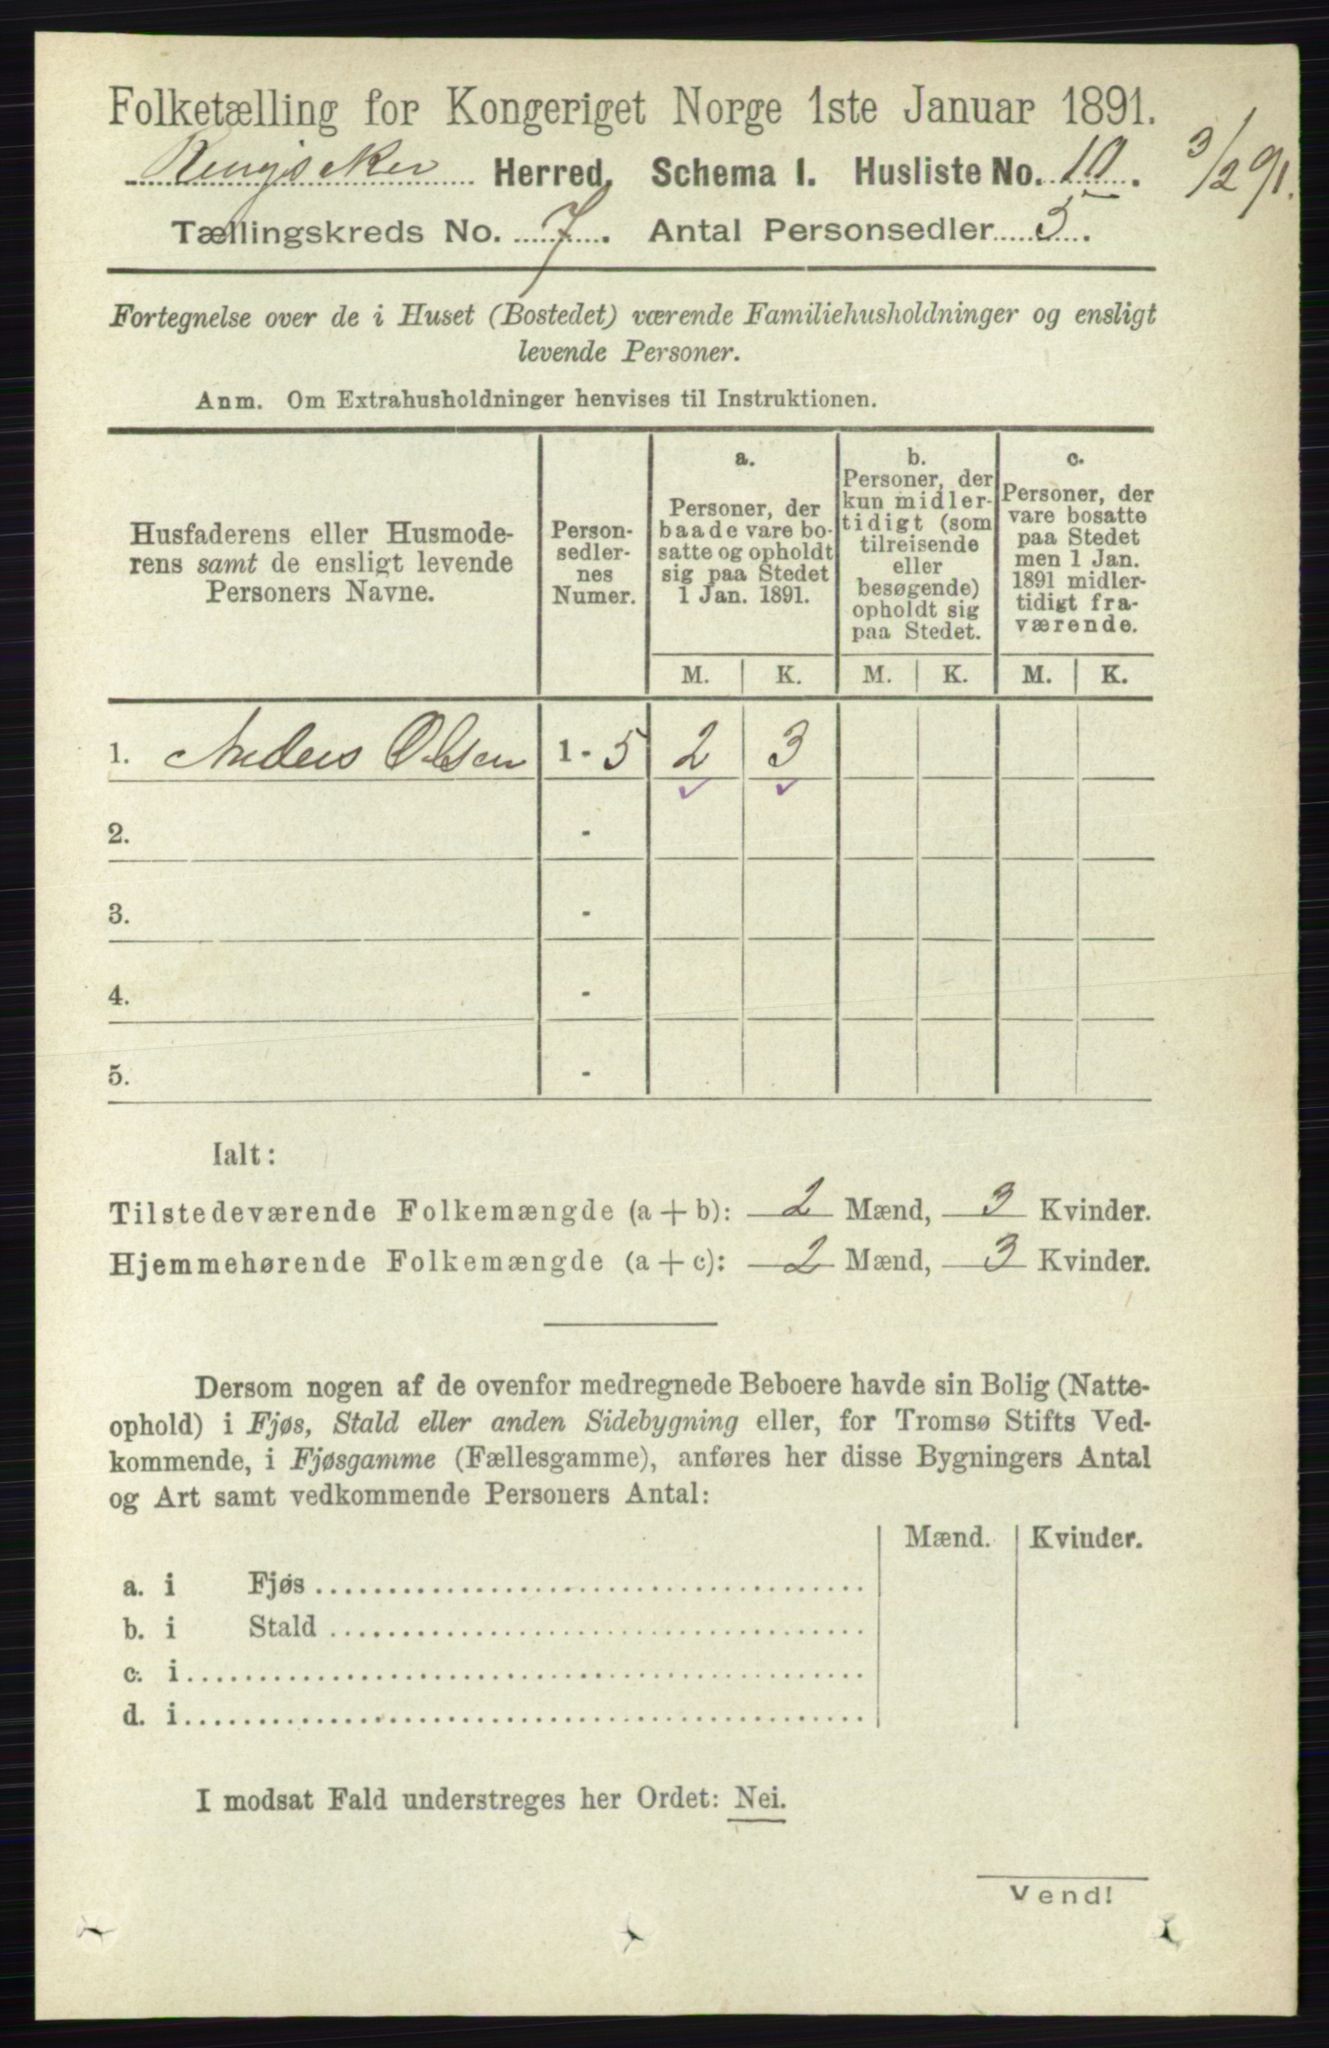 Folketælling for Kongeriget Norge 1ste Januar 1891.
Ringsaker Herred. Schema I. Husliste No. 10.
3/2 91.
Tællingskreds No. 7. Antal Personsedler 5.
Fortegnelse over de i Huset (Bostedet) værende Familiehusholdninger og ensligt
levende Personer.
Anm. Om Extrahusholdninger henvises til Instruktionen.
Husfaderens eller Husmode-
rens samt de ensligt levende
Personers Navne.
Person-
sedler-
nes
Numer.
a.
Personer, der
baade vare bo-
satte og opholdt
sig paa Stedet
1 Jan. 1891.
b.
Personer, der
kun midler-
tidigt (som
tilreisende
eller
besøgende)
opholdt sig
paa Stedet.
c.
Personer, der
vare bosatte
paa Stedet
men 1 Jan.
1891 midler-
tidigt fra-
værende.
M. K. M. K. M. K.
1. Anders Olsen 1 - 5 2 3
2. -
3. -
4. -
5. -
Ialt:
Tilstedeværende Folkemængde (a + b): 2 Mænd, 3 Kvinder.
Hjemmehørende Folkemængde (a + c): 2 Mænd, 3 Kvinder.
Dersom nogen af de ovenfor medregnede Beboere havde sin Bolig (Natte-
ophold) i Fjøs, Stald eller anden Sidebygning eller, for Tromsø Stifts Ved-
kommende, i Fjøsgamme (Fællesgamme), anføres her disse Bygningers Antal
og Art samt vedkommende Personers Antal:
Mænd. Kvinder.
a. i Fjøs
b. i Stald
c. i
d. i
I modsat Fald understreges her Ordet: Nei.
Vend!